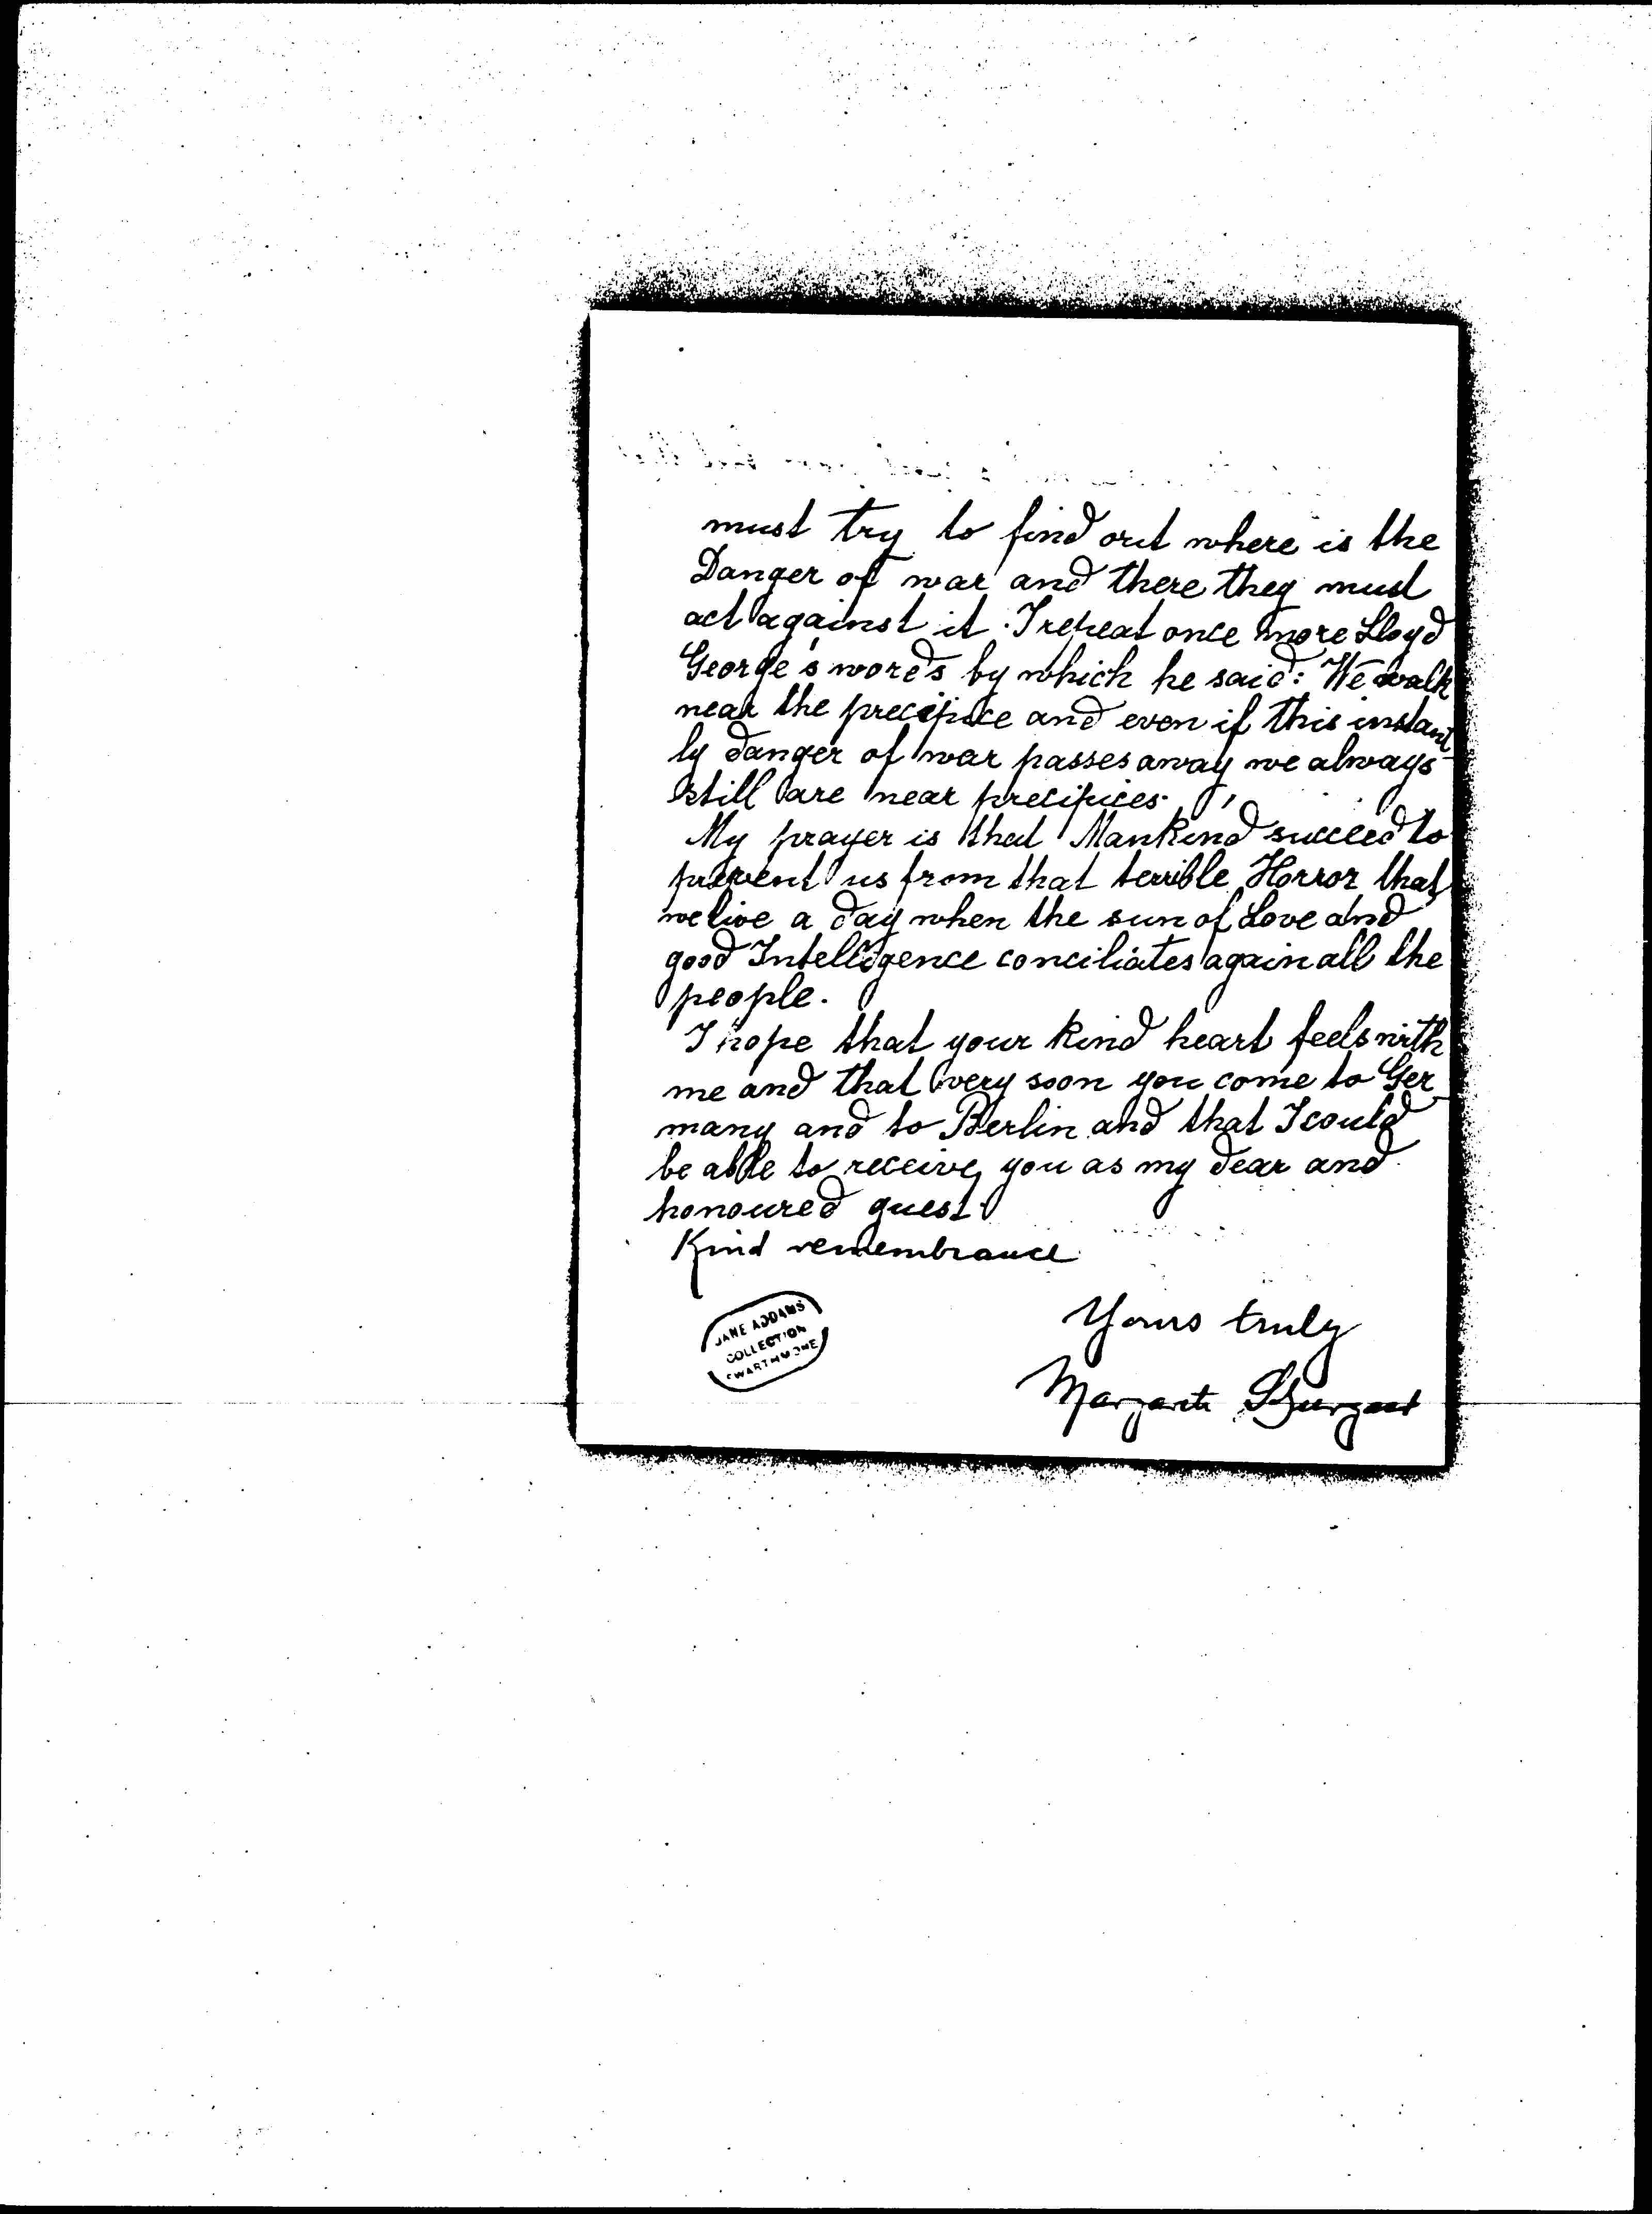 must try to find out where is the
Danger of war and there they must
act against it. I repeat once more Lloyd
George's words by which he said: We walk
near the precipice and even if this instant
ly danger of war passes away we always
still are near precipices.
My prayer is that Mankind succeed to
prevent us from that terrible Horror that
we live a day when the sun of Love and
good Intelligence conciliates again all the
people.
I hope that your kind heart feels with
me and that very soon you come to Ger
many and to Berlin and that I could
be able to receive you as my dear and
honoured guest.
Kind remembrance
Yours truly
Margarete
JANE ADDAMS
COLLECTION
SWARTHMORE